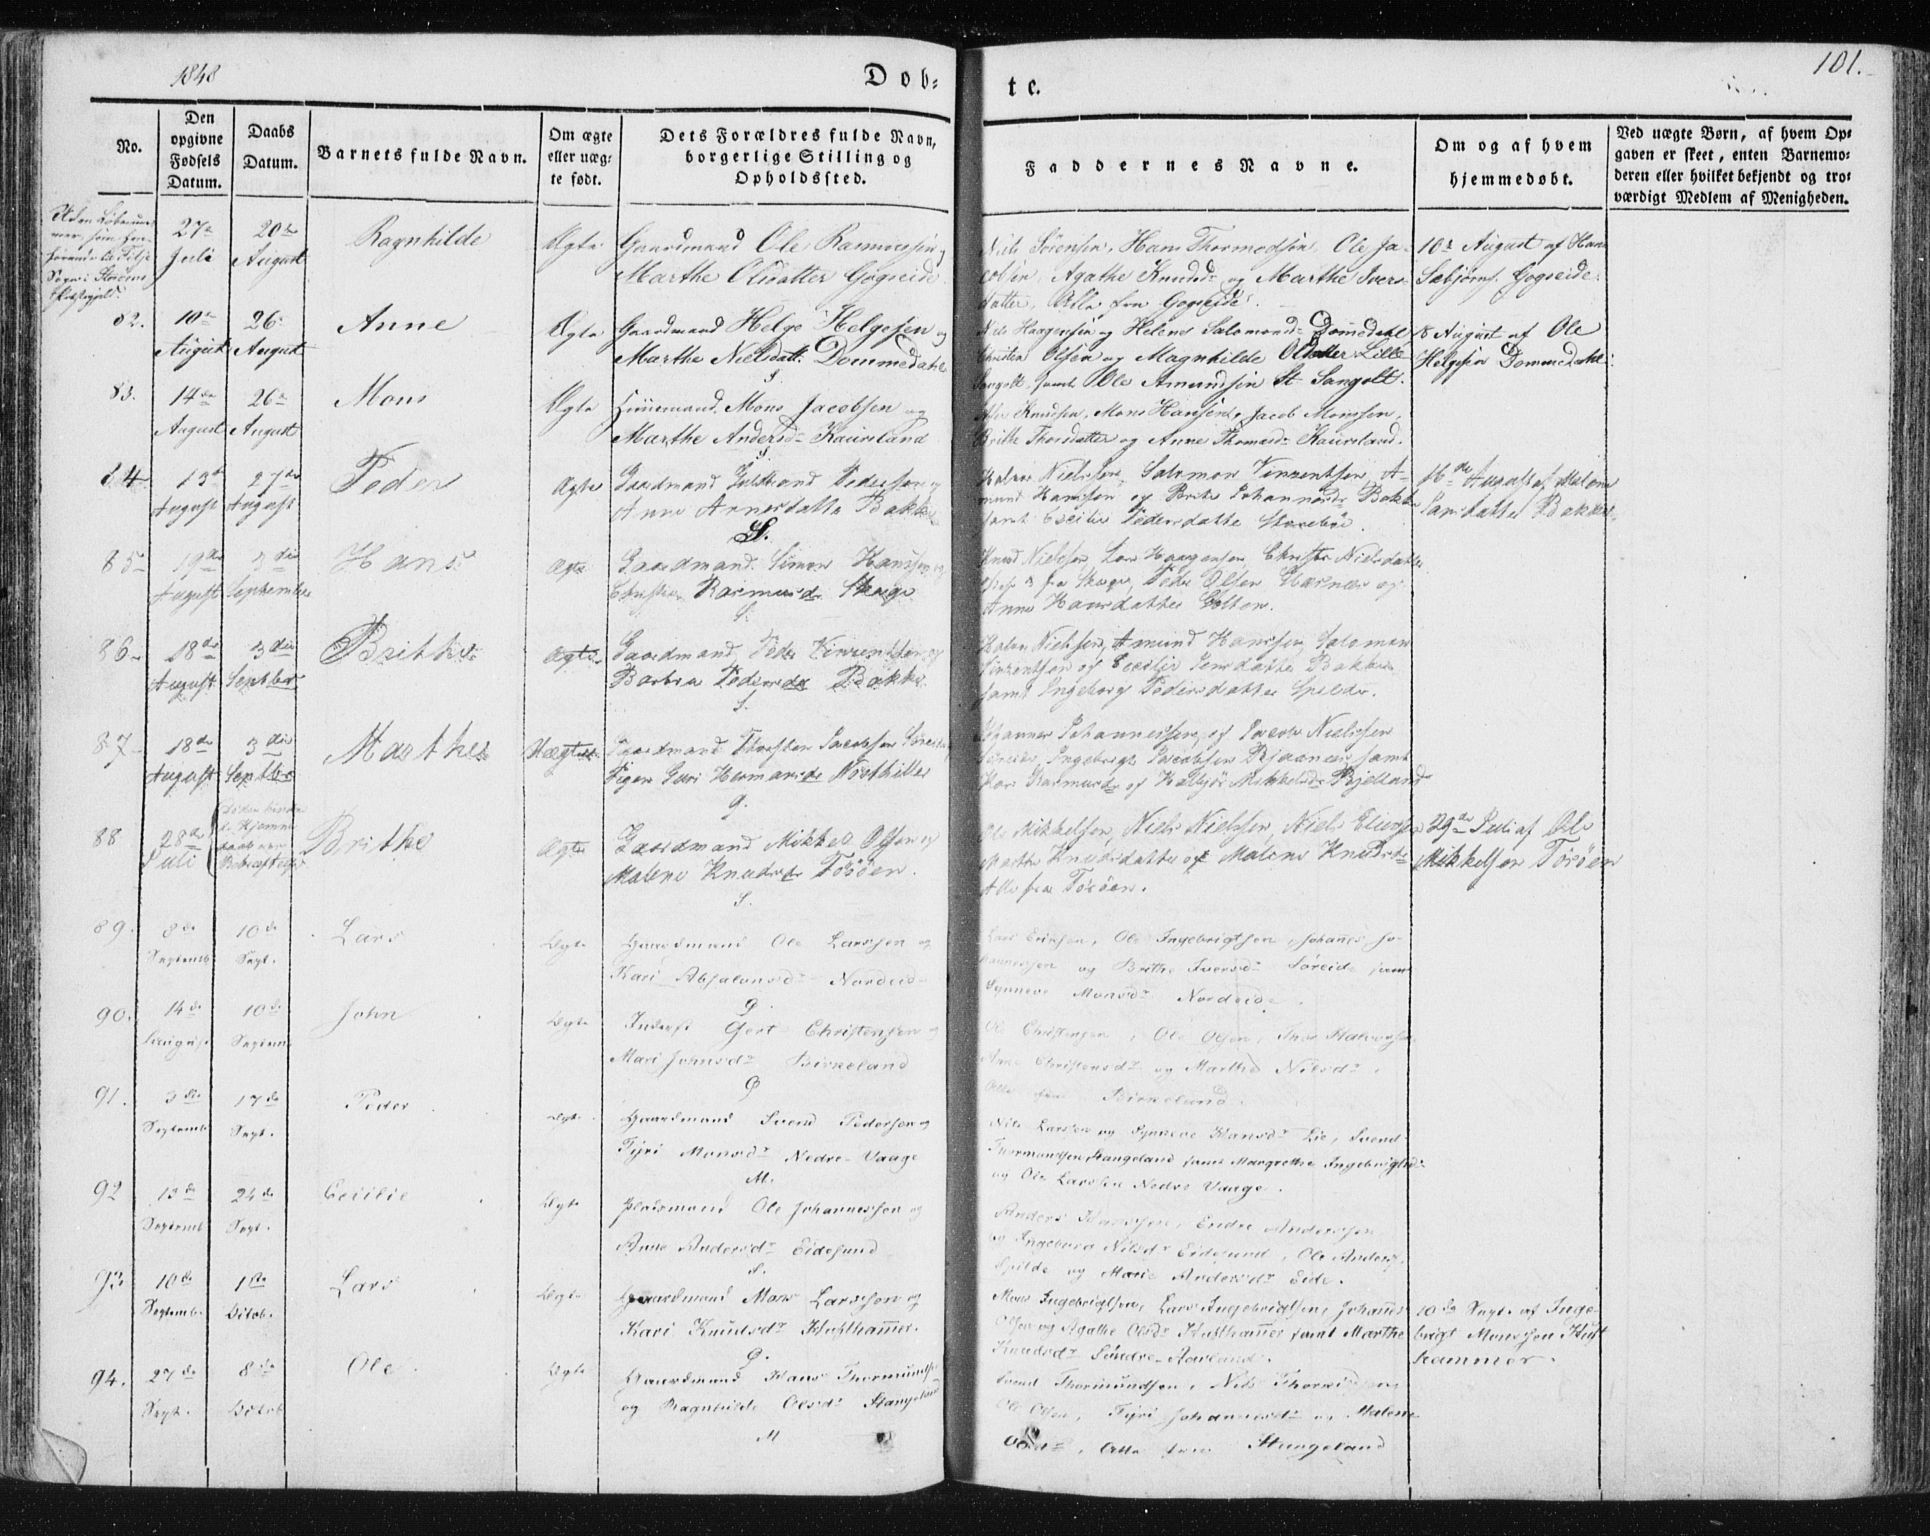 1848
Døb=
te.
101.
No.
Den opgivne Fødsels Datum.
Daabs Datum.
Barnets fulde Navn.
Om ægte eller uæg= te født.
Dets Forældres fulde Navn, borgerlige Stilling og Opholdssted.
Faddernes Navne.
Om og af hvem hjemmedøbt.
Ved uægte Børn, af hvem Op= gaven er skeet, enten Barnemo= deren eller hvilket bekjendt og tro= værdigt Medlem af Menigheden.
27de Juli
20de August
Ragnhilde
Ægte
Gaardmand Ole Rasmussen og
Marthe Olsdatter Gogseide
Niels Sørensen, Hans Thormodsen, Ole Ja-
cobsen, Agathe Knudsdr og Marthe Ivers-
datter, Alle fra Gogseide.
10de August af Hans
Sæbjørns. Gogseide.
82.
10de August
26de August
Anne
Ægte
Gaardmand Helge Helgesen og
Marthe Nielsdatt. Dommedahl
S
Nils Haagensen og Helene Salomonsd. Dommedahl
Christen Olsen og Magnhilde Olsdatter Lille
Sangolt, samt Ole Amundsen St. Sangolt.
18 August af Ole
Helgesen Dommedahl.
83.
14de August
26de August
Mons
Ægte
Mons Jacobsen og
Marthe Andersdr Kaursland
S
Knudsen, Mons Hansen, Jacob Monssen,
Brithe Thorsdatter og Anne Thomasdr Kaursland.
84
13de August
27de August
Peder
Ægte
Gaardmand Pedersen og
Anne Arnesdatte Bakke
S.
Halvor Nielssen, Salamon Vinzentsen, A-
mund Hanssen og Brite Johannesdr Bakke
samt Cecilie Pedersdatte Storebøe.
16de August af Malene
Larsdatter Bakke
85
19de August
3die September
Hans
Ægte
Gaardmand Simon Hanssen og
Christie Rasmusdr Skage
S.
Knud Nielssen, Lars Haagensen, Christie Nielsdatte
fra Skage, Peder Olsen Glæsnes og
Anne Hansdatter Golten.
86
18de August
3die Septbr
Brithe
Ægte
Gaardmand Peder Vinzentsen og
Barbra Pedersdr Bakke
S.
Halvor Nielssen, Amund Hanssen, Salomon
Vinzentsen og Cecilie Jensdatte Bakke
samt Ingeborg Pedersdatte Spilde.
87
18de August
3die Septbr
Marthe
Uægte
Gaardmand Thorsten Jacobsen
Pigen Guri Hermansdr
G.
Johannes Johannessen og Jacob Nielssen
Ingebrigt Jacobsen Bjaanes samt
Kari Rasmusdr og Mikkelsdr Bjelland
88
28de Juli
Brithe
Ægte
Gaardmand Mikkel Olsen og
Malene Knudsdr Torøen.
S.
Ole Mikkelsen, Niels Nielssen, Niels Eliassen
Marthe Knudsdatte og Malene Knudsdr
Alle fra Torøen.
29de Juli af Ole
Mikkelsen Torøen
89.
8de Septemb.
10de Sept.
Lars
Ægte
Gaardmand Ole Larssen og
Kari Absalonsdr Nordeid
G.
Lars Eriksen, Ole Ingebrigtsen, Johannes Jo-
hannessen og Brithe Iversdr Søreide samt
Synneve Monsdr Nordeide.
90.
14de August
10de Septemb.
John
Ægte
Inderst Gert Christensen og
Mari Johnsdr Birkeland
G
Ole Christensen, Ole Olsen, Thor Halvorsen
Anne Christensdr og Marthe Nilsdr,
Alle fra Birkeland.
91.
3die Septemb.
17de Sept.
Peder
Ægte
Gaardmand Svend Pedersen og
Tyri Monsdr Nedre-Vaage
M.
Nils Larssen og Synneve Hansdr Lie, Svend
Thormundsen Stangeland samt Margrethe Ingebrigtsdr
og Ole Larssen Nedre Vaage.
92
13de Septemb
24de Sept.
Cecilie
Ægte
Pladsmand Ole Johannessen og
Anne Andersdr Eidesund
S.
Anders Hanssen, Endre Anderssen
og Ingeborg Nilsdr Eidesund, Ole Anders.
Spilde og Marie Andersdr Eide.
93
10de Septemb.
1ste Octob.
Lars
Ægte
Gaardmand Mons Larssen og
Kari Knudsdr Hufthammer.
G.
Mons Ingebrigtsen, Lars Ingebrigtsen, Johannes
Olsen og Agathe Olsdr Hufthammer samt Marthe
Knudsdr Søndre-Aarland.
10de Sept. af Inge-
brigt Monssen Huft
hammer.
94.
27de Sept.
8de Octob
Ole
Ægte
Gaardmand Hans Thormundsen
og Ragnhilde Olsdr Stangeland
M
Svend Thormundsen, Nils
Ole Olsen, Tyri Johannesdr og Malene
Olsdr, Alle fra Stangeland